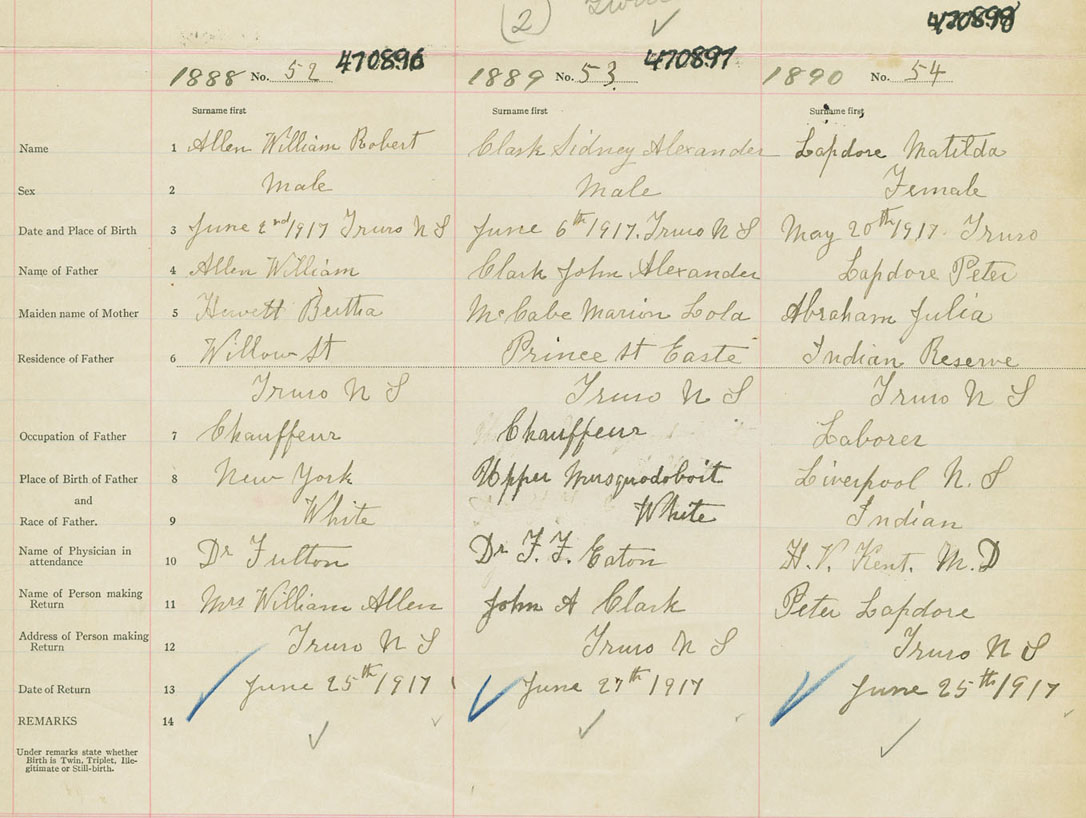 (2)
470898
1888 No. 52 470896 1889 No. 53 470897 1890 No. 54
Surname first Surname first Surname first
Name 1 Allen William Robert Clark Sidney Alexander Lapdore Matilda
Sex 2 Male Male Female
Date and Place of Birth 3 June 2nd/1917 Truro N S June 6th/1917. Truro N S May 20th/1917. Truro
Name of Father 4 Allen William Clark John Alexander Lapdore Peter
Maiden name of Mother 5 Hewett Bertha McCabe Marion Lola Abraham Julia
Residence of Father 6 Willow St Prince St Easte Indian Reserve
Truro N S Truro N S Truro N S
Occupation of Father 7 Chauffeur Chauffeur Laborer
Place of Birth of Father 8 New York Upper Musquodoboit Liverpool N. S
and
Race of Father. 9 White White Indian
Name of Physician in
attendance 10 Dr Fulton Dr F. F. Eaton H. V. Kent. M. D
Name of Person making
Return 11 Mrs William Allen John A Clark Peter Lapdore
Address of Person making
Return 12 Truro N S Truro N S Truro N S
Date of Return 13 June 25th/1917 June 27th/1917 June 25th/1917
REMARKS 14
Under remarks state whether
Birth is Twin, Triplet, Ille-
gitimate or Still-birth.